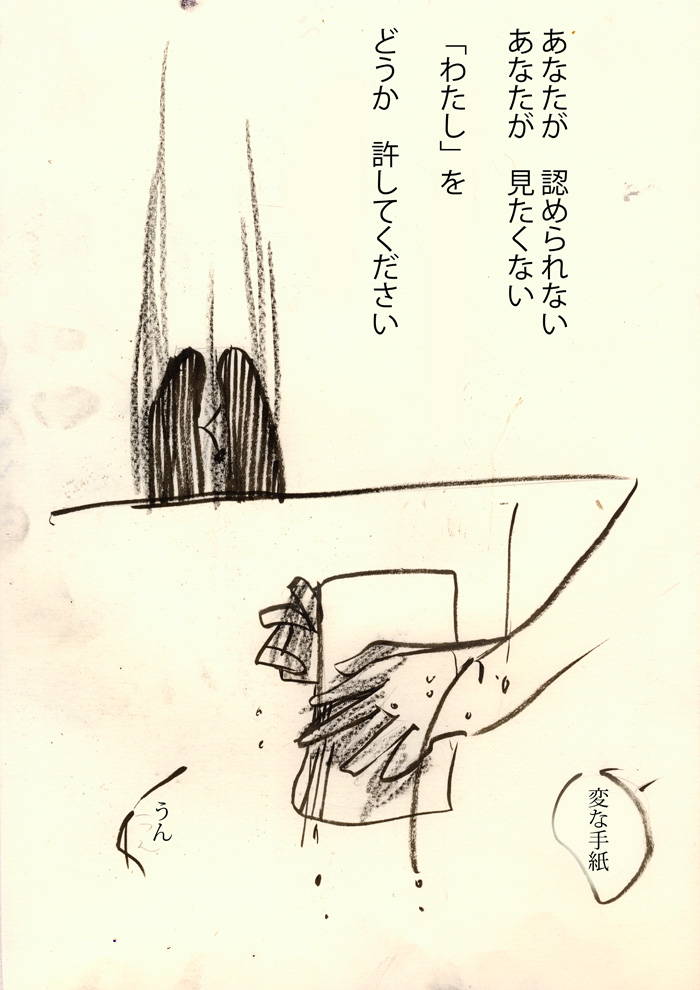 あなたが　認められない
あなたが　見たくない
「わたし」を
どうか　許してください
変な手紙
うん